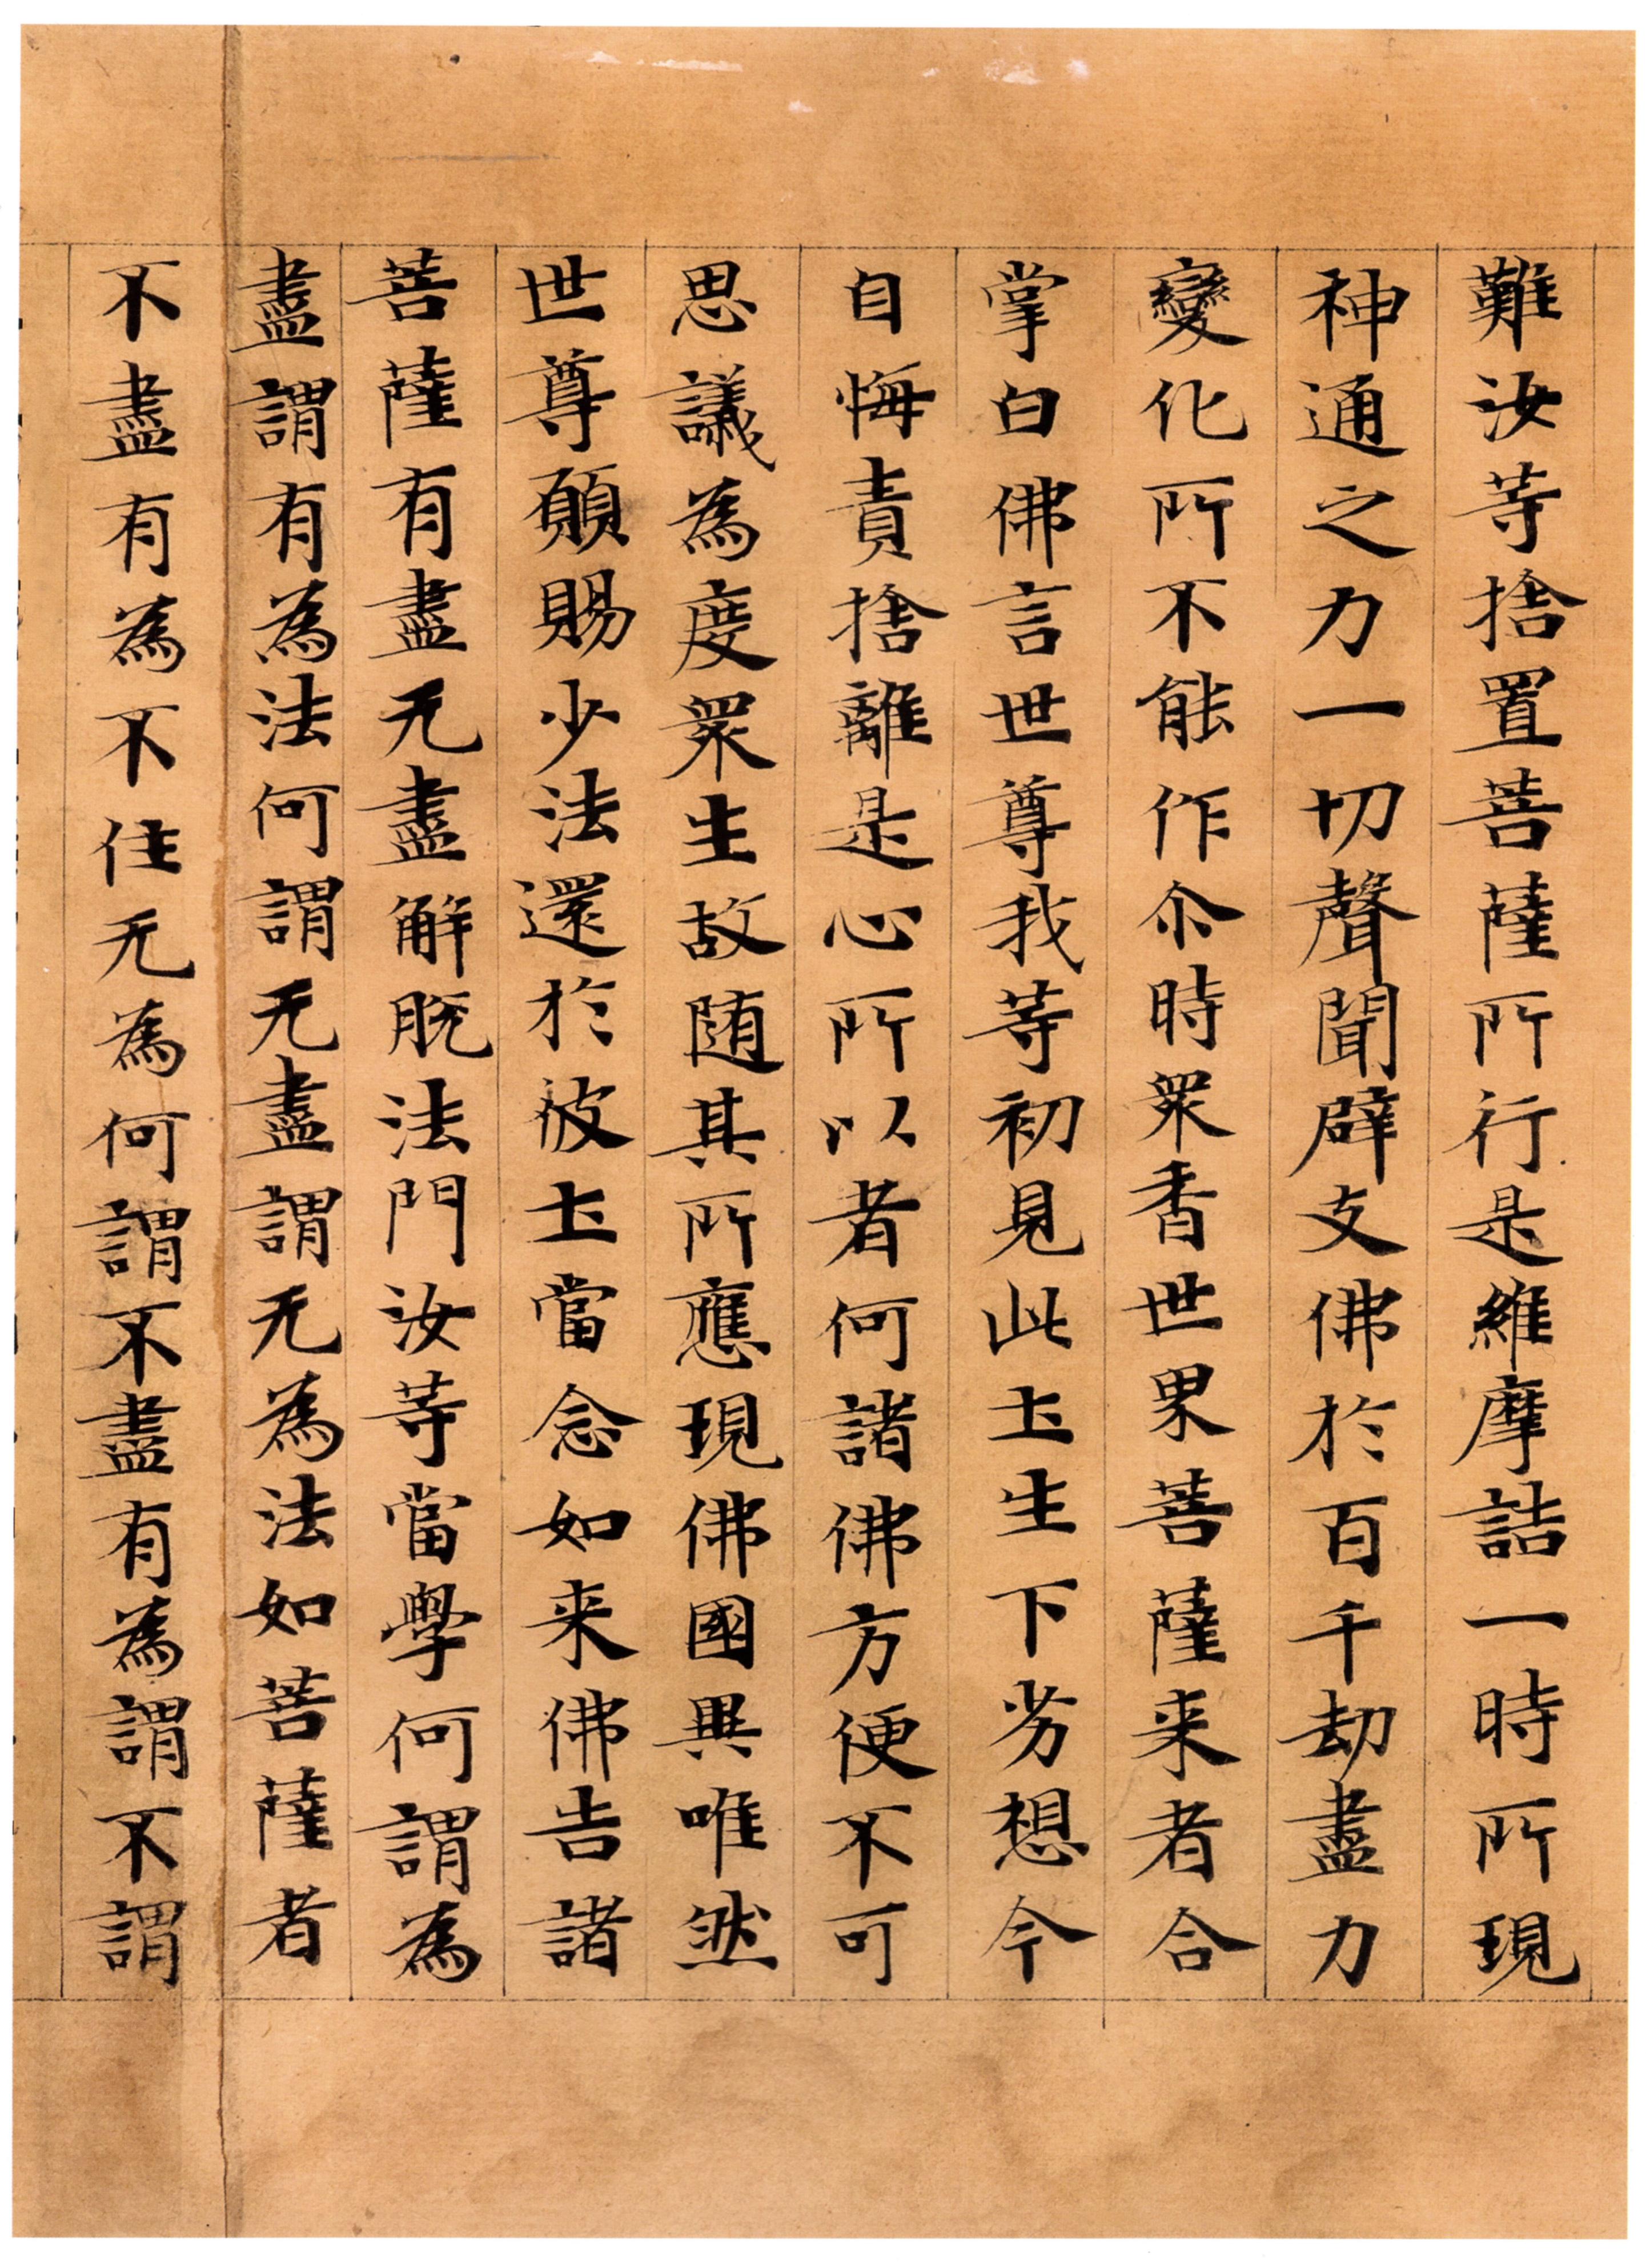 難汝等捨置菩薩所行是維摩詰一時所現
神通之力一切聲聞辟支佛於百千劫盡力
變化所不能作尒時衆香世界菩薩来者合
掌白佛言世尊我等初見此土生下劣想今
自悔責捨離是心所以者何諸佛方便不可
思議為度衆生故随其所應現佛國異唯然
世尊願賜少法還於彼土當念如来佛告諸
菩薩有盡无盡解脫法門汝等當學何謂為
盡謂有為法何謂无盡謂无為法如菩薩者
不盡有為不住无為何謂不盡有為謂不謂